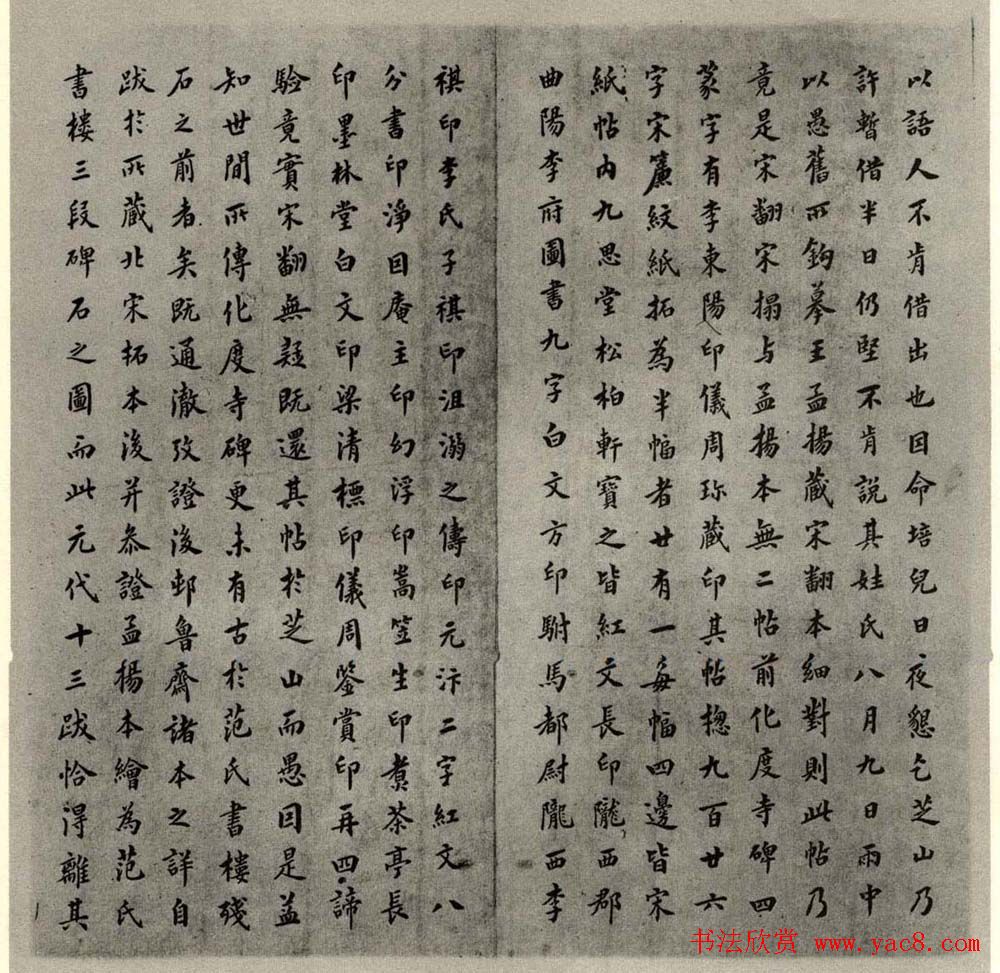 以語人不肯借出也因命培兒日夜懇乞芝山乃
許暫借半日仍堅不肯說其姓氏八月九日雨中
以愚舊所鉤摹王孟揚藏宋翻本細對則此帖乃
竟是宋翻宋搨与孟揚本無二帖前化度寺碑四
篆字有李東陽印儀周珎藏印其帖揔九百廿六
字宋簾紋紙拓為半幅者廿有一每幅四邊皆宋
紙帖内九思堂松柏軒寶之皆紅文長印隴西郡
曲陽李府圖書九字白文方印駙馬都尉隴西李
祺印李氏子祺印沮溺之儔印元汴二字紅文八
分書印淨因庵主印幻浮印嵩笠生印煑茶亭長
印墨林堂白文印梁清標印儀周鑒賞印再四諦
驗竟實宋翻無疑既還其帖於芝山而愚因是益
知世間所傳化度寺碑更未有古於范氏書樓殘
石之前者矣既通澈攷證後邨魯齋諸本之詳自
跋於所藏北宋拓本後并叅證孟揚本繪為范氏
書樓三段碑石之圖而此元代十三跋恰得離其
书法欣赏 www.yac8.com